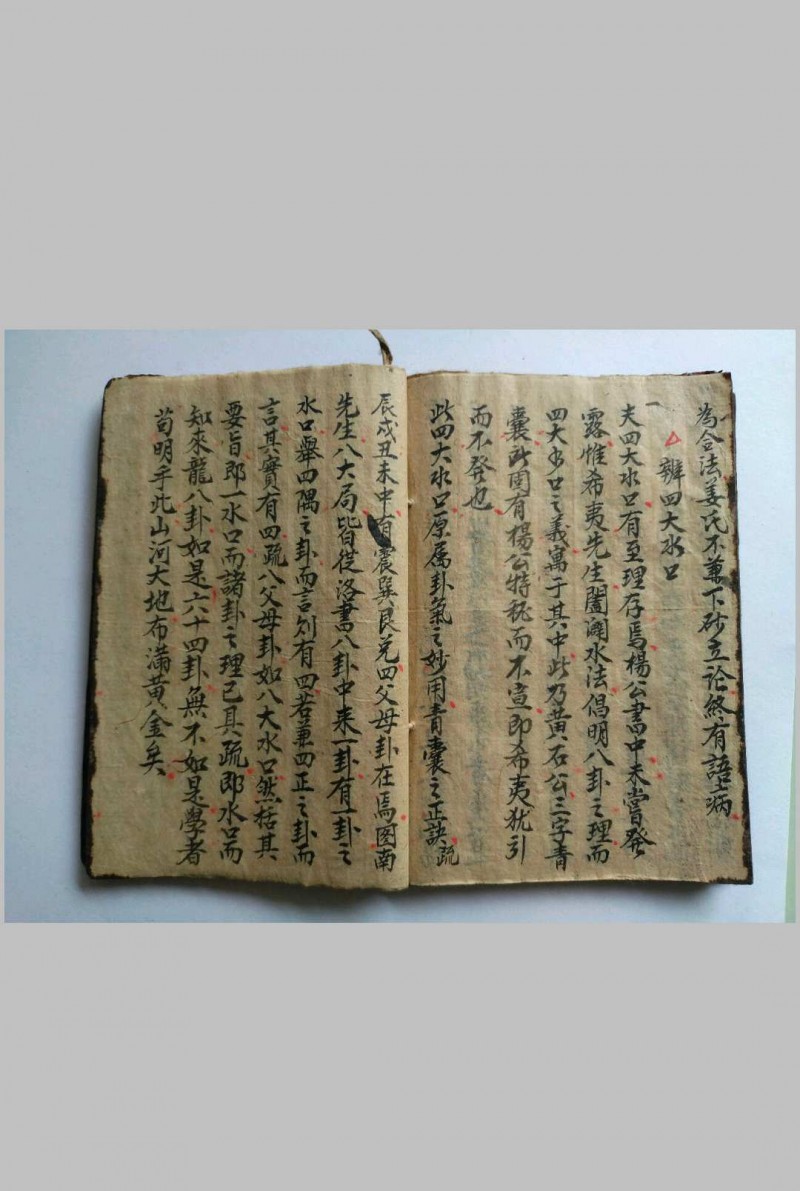 為合法姜氏不兼下砂立論終有語病
辨四大水口
夫四大水口有至理存焉楊公書中未嘗發
露惟希夷先生闔闢水法倡明八卦之理而
四大水口之義寓于其中此乃黄石公三字青
囊所固有楊公特秘而不宣即希夷犹引
而不發也
此四大水口原属卦氣之妙用青囊之正訣疏
辰戌丑未中有震巽艮兑四父母卦在焉图南
先生八大局皆從洛書八卦中来一卦有一卦之
水口舉四隅之卦而言則有四若兼四正之卦而
言其實有四疏八父母卦如八大水口然括其
要旨即一水口而諸卦之理已具疏即水口而
知來龍八卦如是六十四卦無不如是學者
苟明乎此山河大地布滿黄金矣